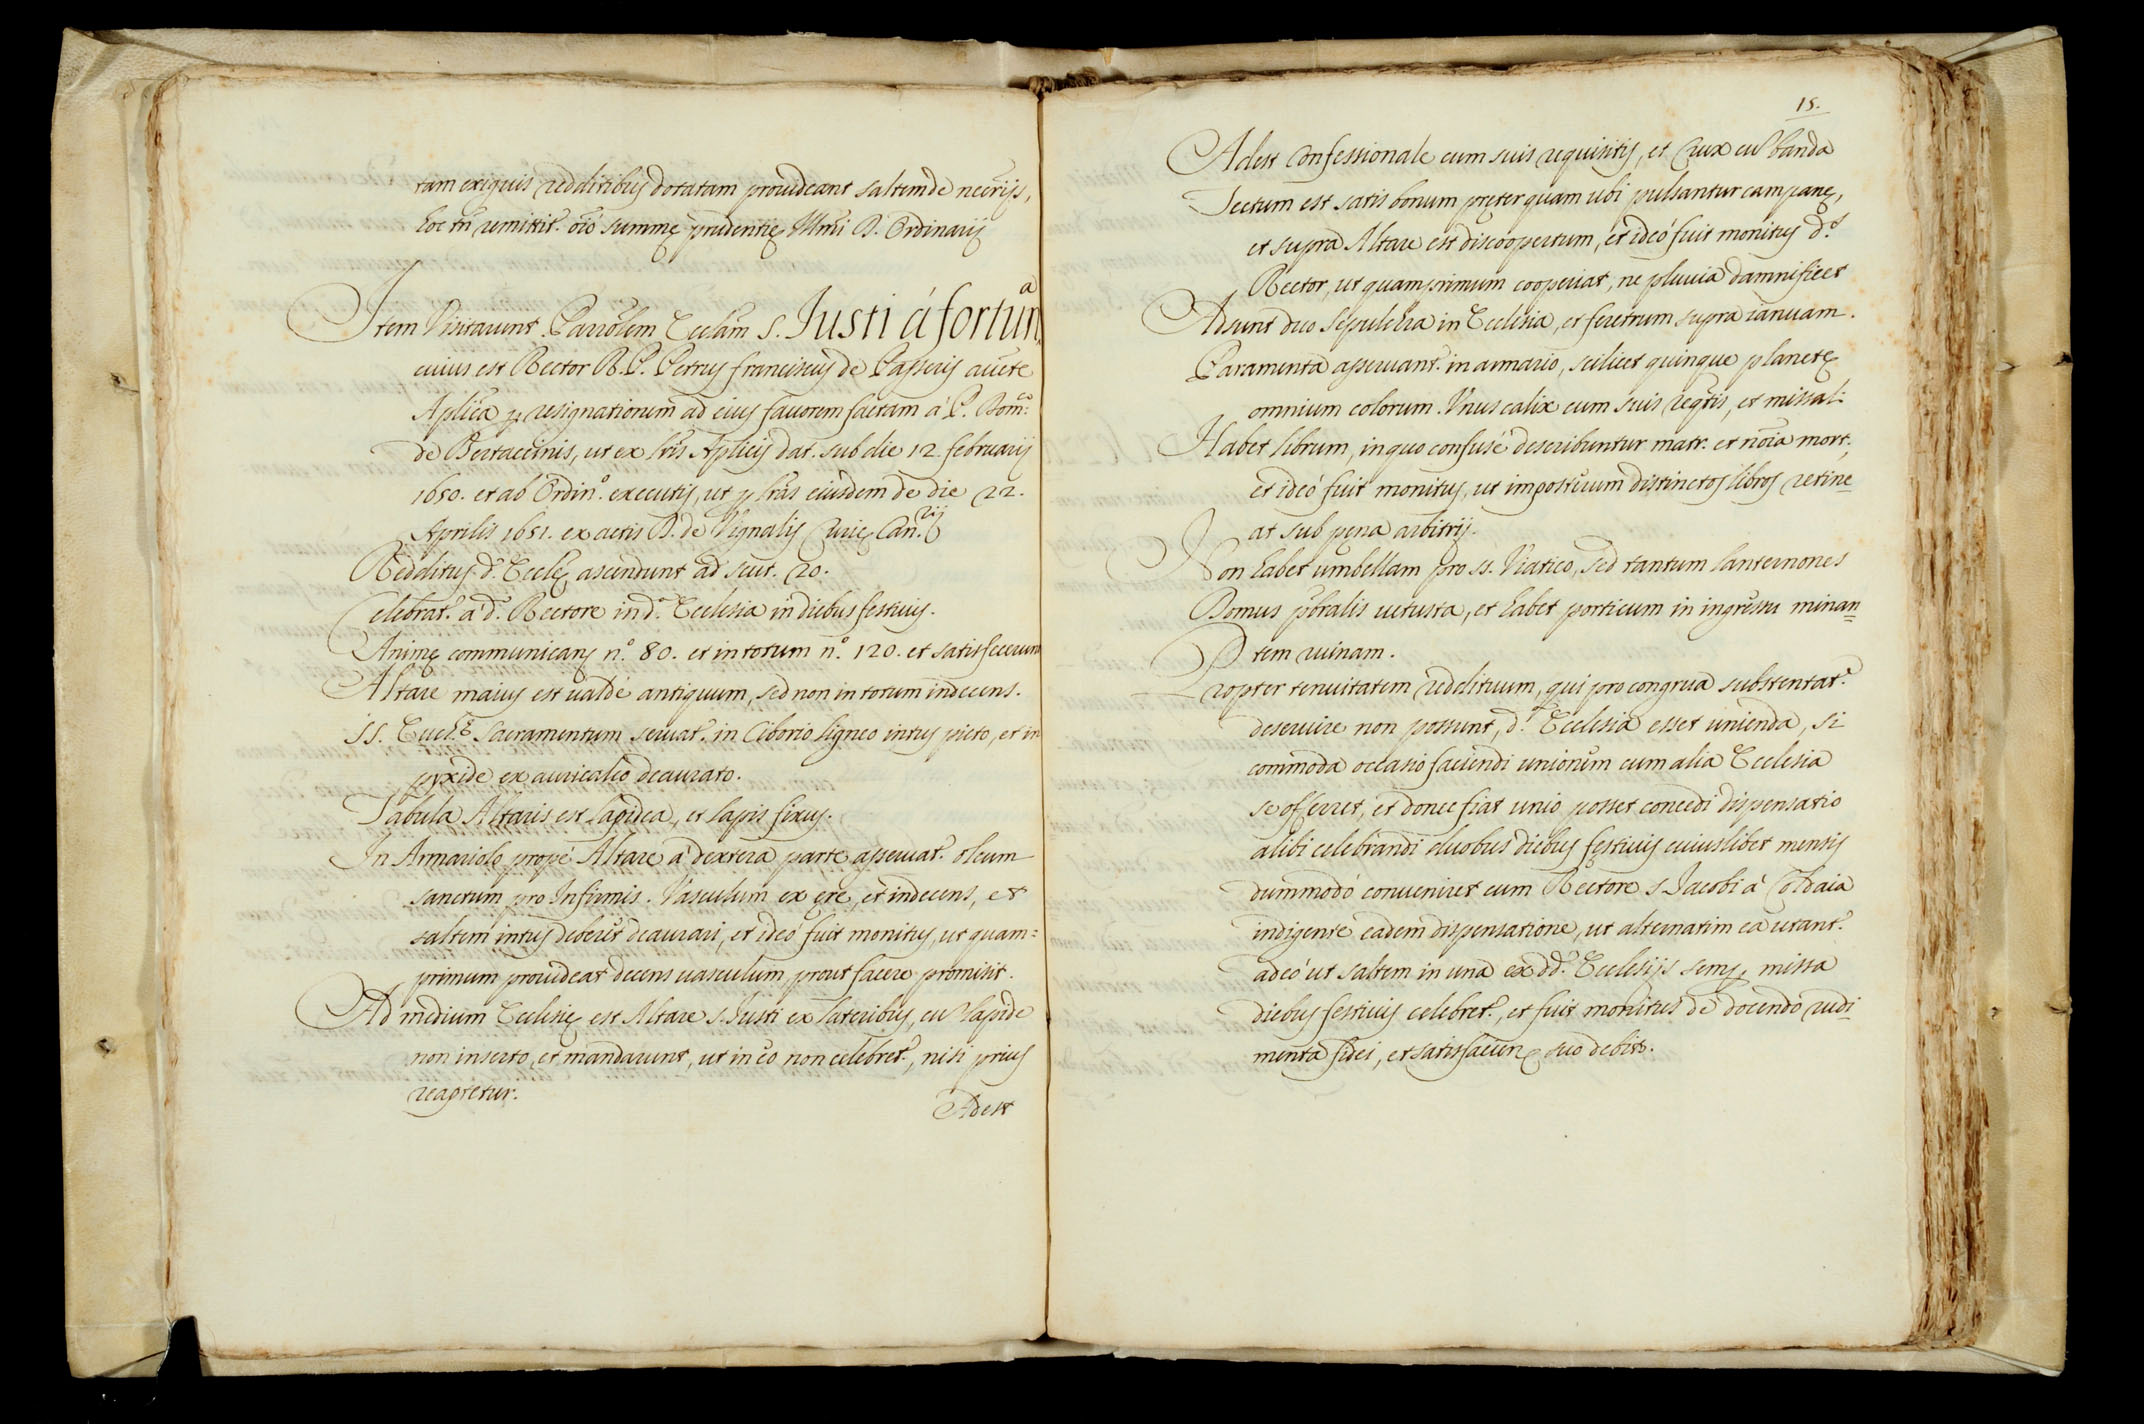 tam exiguis redditibus dotatam prouideant saltem de necrijs,
hoc tn̄ remittit. oīo summę prudentię Illmi D. Ordinarij
Item Visitarunt Parrolem Ecclam S. Iusti à fortuna
cuius est Rector R. P. Petrus franciscus de Passeris aucte
Aplica ꝑ resignationem ad eius fauorem factam à P. Domco:
de Bertaccinis, ut ex lris Aplicis dat. sub die 12 februarij
1650. et ab Ordino. executis, ut ꝑ lras eiusdem de die 22.
Aprilis 1651. ex actis D. de Vignalis Curię Can.rij
Redditus d. Ecclę ascendunt ad scut. 20.
Celebrat. à d. Rectore in d. Ecclesia in diebus festiuis.
Animę communicans n.o 80. et in totum n.o 120. et satisfecerunt
Altare maius est ualdè antiquum, sed non in totum indecens.
SS. Euch.ę Sacramentum seruat. in Ciborio ligneo intus picto, et in
pyxide ex auricalco deaurato.
Tabula Altaris est lapidea, et lapis fixus.
In Armariolo propè Altare à dextera parte asseruat. oleum
sanctum pro Infirmis. Vasculum ex ęre, et indecens, et
saltem intus deberet deaurari, et ideò fuit monitus, ut quam=
primum prouideat decens uasculum, prout facere promisit.
Ad medium Ecclesię est Altare S. Iusti ex lateribus, cū lapide
non inserto, et mandarunt, ut in eo non celebret., nisi prius
reaptetur.
Adest
15.
Adest Confessionale cum suis requisitis, et Crux cū banda
Tectum est satis bonum pręterquam ubi pulsantur campanę,
et supra Altare est discoopertum, et ideò fuit monitus d.s
Rector, ut quamprimum cooperiat, ne pluuia damnificet
Adsunt duo Sepulchra in Ecclesia, et feretrum supra ianuam.
Paramenta asseruant. in armario, scilicet quinque planetę
omnium colorum. Vnus calix cum suis reqtis, et missal:
Habet librum, in quo confusè describuntur matr. et noīa mort.,
et ideò fuit monitus, ut imposterum distinctos libros retine=
at sub pęna arbitrij.
Non habet umbellam pro SS. Viatico, sed tantum lanternones
Domus pbralis uetusta, et habet porticum in ingressu minan=
tem ruinam.
Propter tenuitatem reddituum, qui pro congrua substentat.e
deseruire non possunt, d.a Ecclesia esset unienda, si
commoda occasio faciendi unionem cum alia Ecclesia
se offerret, et donec fiat unio posset concedi dispensatio
alibi celebrandi duobus diebus festiuis cuiuslibet mensis
dummodò conueniret cum Rectore S. Iacobi à Coldaia
indigente eadem dispensatione, ut alternatim ea utant.
adeò ut saltem in una ex dd. Ecclesijs semꝑ missa
diebus festiuis celebret., et fuit monitus de docendo rudi=
menta fidei, et satisfaciend suo debito.